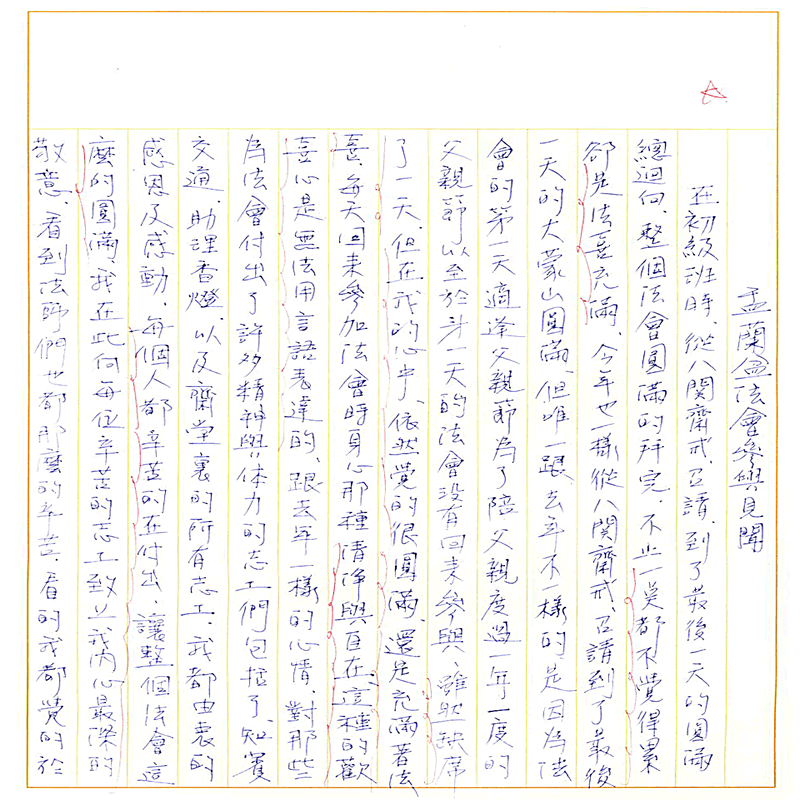 盂蘭盆法會參與見聞
在初級班時、從八関齋戒、召請、到了最後一天的圓滿
總迴向、整個法會圓滿的拜完、不止一點都不覺得累
卻是法喜充滿、今年也一樣從八関齋戒、召請到了最後
一天的大蒙山圓滿、但唯一跟去年不一樣的、是因為法
會的第一天適逢父親節為了陪父親度過一年一度的
父親節以至於第一天的法會沒有回來參與、雖然缺席
了一天、但在我的心中、依然覺的很圓滿、還是充滿著法
喜、每天回來參加法會時身心那種清淨與自在、這種的歡
喜心是無法用言語表達的、跟去年一樣的心情、對那些
為法會付出了許多精神與体力的志工們包括了、知賓
交通、助理香燈、以及齋堂裏的所有志工、我都由衷的
感恩及感動、每個人都辛苦的在付出、讓整個法會這
麼的圓滿、我在此向每位辛苦的志工致上我內心最深的
敬意、看到法師們也都那麼的辛苦、看的我都覺的於